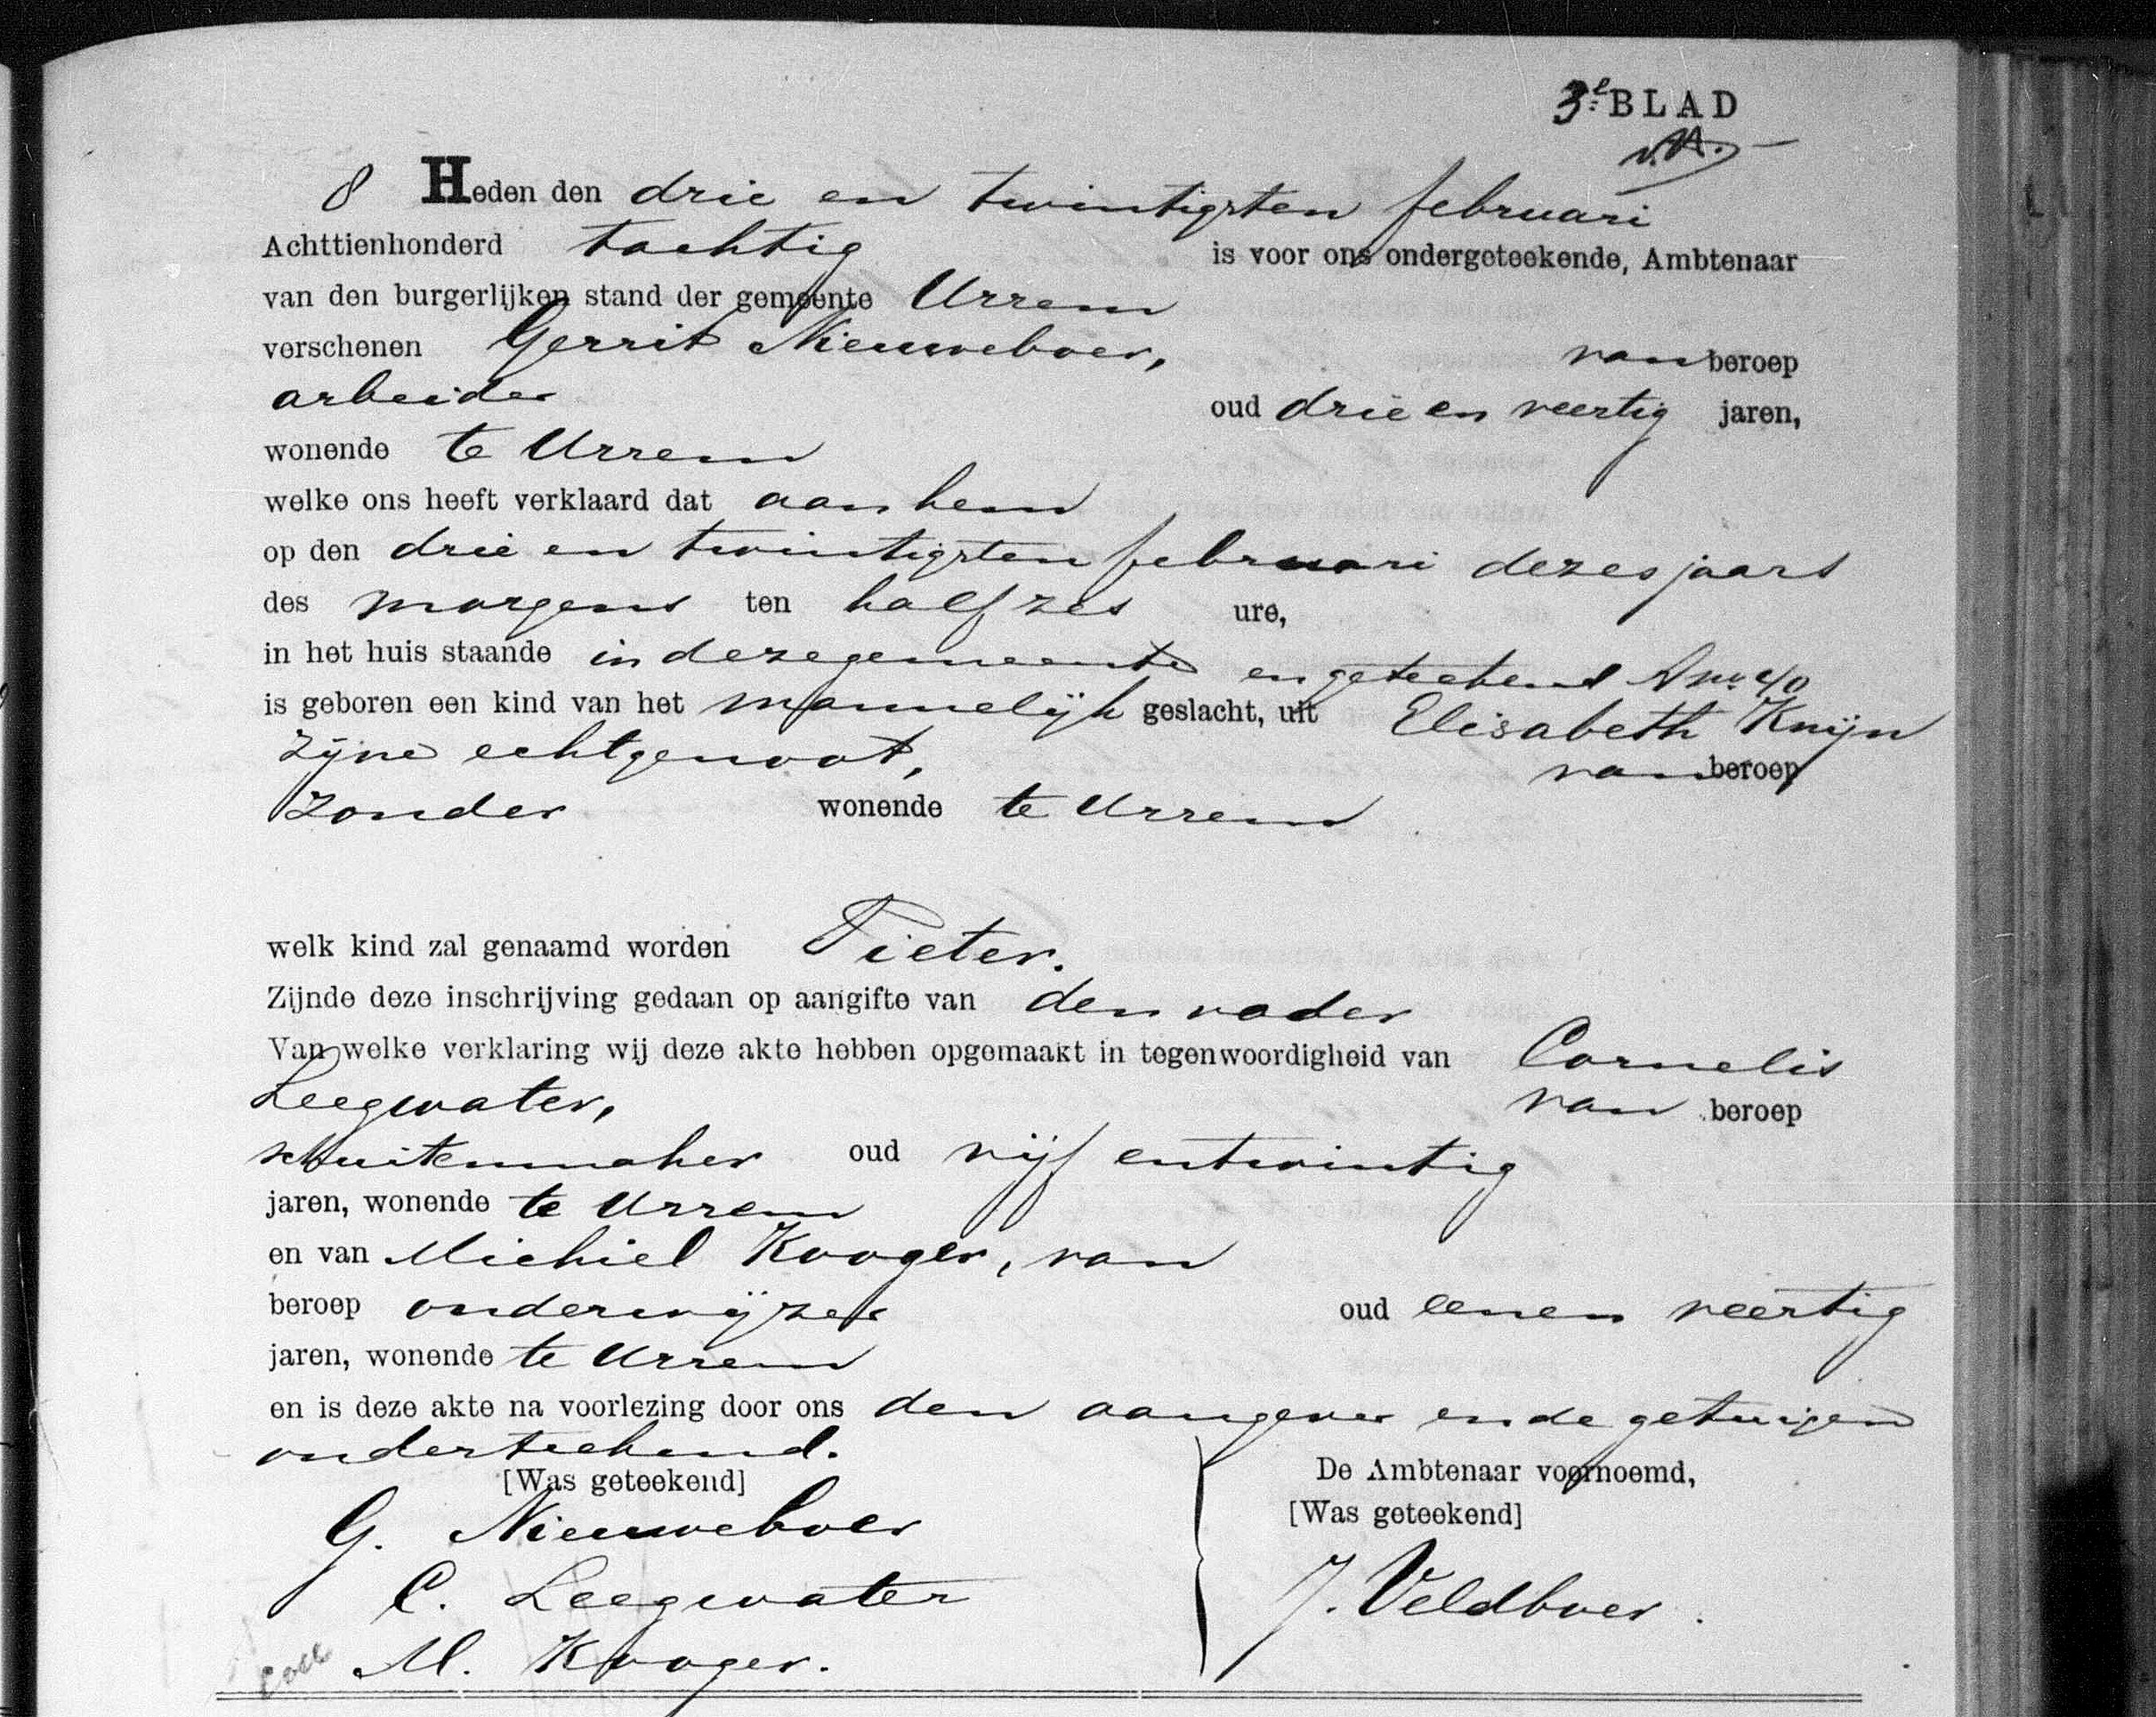 3e BLAD
8 Heden den drie en twintigsten februari
Achttienhonderd tachtig is voor ons ondergeteekende, Ambtenaar
van den burgerlijken stand der gemeente Urrem
verschenen Gerrit Nieuweboer, van beroep
arbeider oud drie en veertig jaren,
wonende te Urrem
welke ons heeft verklaard dat aan hem
op den drie en twintigsten februari dezes jaars
des morgens ten half zes ure,
in het huis staande in deze gemeente en geteekend A no. 40
is geboren een kind van het mannelijk geslacht, uit Elisabeth Knijn
zijne echtgenoot, van beroep
zonder wonende te Urrem
welk kind zal genaamd worden Pieter.
Zijnde deze inschrijving gedaan op aangifte van den vader
Van welke verklaring wij deze akte hebben opgemaakt in tegenwoordigheid van Cornelis
Leegwater, van beroep
schuitenmaker oud vijf en twintig
jaren, wonende te Urrem
en van Michiel Kooger, van
beroep onderwijzer oud een en veertig
jaren, wonende te Urrem
en is deze akte na voorlezing door ons den aangever en de getuigen
onderteekend.
[Was geteekend] De Ambtenaar voornoemd,
[Was geteekend]
G. Nieuweboer
C. Leegwater J. Veldboer.
M. Kooger.